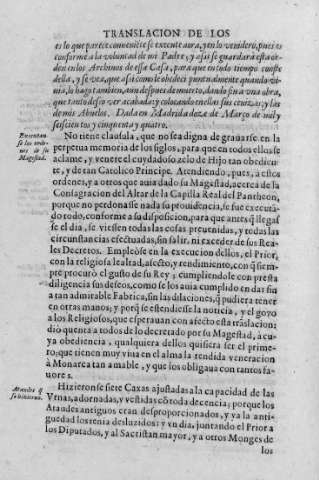 TRANSLACION DE LOS
es lo que parece conueniẽte se execute aora, y en lo venidero, pues es
conforme à la voluntad de mi Padre; y assi se guardarà esta or-
den en los Archiuos de essa Casa, para que en todo tiempo conste
della, y se vea, que assi como le obedecì puntualmente quando vi-
uia, lo hago tambien, aun despues de muerto, dando fin a vna obra,
que tanto desseo ver acabada, y colocando en ella sus cenizas, y las
de mis Abuelos. Dada en Madrid a doze de Março de mil y
seiscientos y cinquenta y quatro.
No tiene clausula, que no sea digna de grauarse en la
perpetua memoria de los siglos, para que en todos ellos se
aclame, y venere el cuydadoso zelo de Hijo tan obedien-
te, y de tan Catolico Principe. Atendiendo, pues, à estas
ordenes, y a otros que auia dado su Magestad, acerca de la
Consagracion del Altar de la Capilla Real del Pantheon,
porque no perdonasse nada su prouidencia, se fue executã-
do todo, conforme a su disposicion, para que antes q̃ llegas-
se el dia, se viessen todas las cosas preuenidas, y todas las
circunstancias efectuadas, sin salir, ni exceder de sus Rea-
les Decretos. Empleòse en la execucion dellos, el Prior,
con la religiosa lealtad, afecto, y rendimiento, con q̃ siem-
pre procurò el gusto de su Rey; cumpliendole con presta
diligencia sus deseos, como se los auia cumplido en dar fin
a tan admirable Fabrica, sin las dilaciones, q̃ pudiera tener
en otras manos; y porq̃ se estendiesse la noticia, y el gozo
a los Religiosos, que esperauan con afecto esta traslacion;
diò quenta a todos de lo decretado por su Magestad, à cu-
ya obediencia, qualquiera dellos quisiera ser el prime-
ro; que tienen muy viua en el alma la rendida veneracion
à Monarca tan amable, y que los obligaua con tantos fa-
uores.
Executan
se las orde-
nes de su
Magestad.
Hizieronse siete Caxas ajustadas a la capacidad de las
Vrnas, adornadas, y vestidas cõ toda decencia; porque los
Ataudes antiguos eran desproporcionados, y ya la anti-
guedad los tenia desluzidos; y vn dia, juntando el Prior a
los Diputados, y al Sacristan mayor, y a otros Monges de
Ataudes q̃
se hizieron.
los